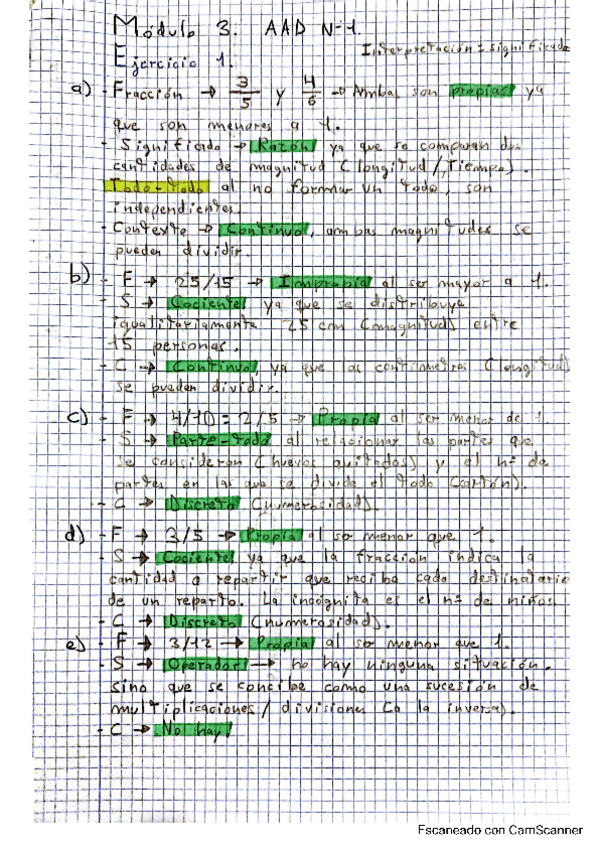 Módulo 3. AAD Nº1.
Interpretación = significado
Ejercicio 1.
a) - Fracción → 3/5 y 4/6 → Ambas son propias ya
que son menores a 1.
- Significado → Razón, ya que se comparan dos
cantidades de magnitud (longitud/Tiempo).
Todo-todo al no formar un todo, son
independientes.
- Contexto → Continuo, ambas magnitudes se
pueden dividir.
b) - F → 25/15 → Impropia al ser mayor a 1.
- S → Cociente, ya que se distribuye
igualitariamente 25 cm (magnitud) entre
15 personas.
- C → Continuo, ya que os centímetros (longitud)
se pueden dividir.
c) - F → 4/10 = 2/5 → Propia al ser menor de 1.
- S → Parte-todo al relacionar las partes que
se consideran (huevos quitados) y el nº de
partes en las que se divide el todo (cartón).
- C → Discreto (numerosidad).
d) - F → 3/5 → Propia al ser menor que 1.
- S → Cociente, ya que la fracción indica la
cantidad a repartir que recibe cada destinatario
de un reparto. La incógnita es el nº de niños.
- C → Discreto (numerosidad).
e) - F → 3/12 → Propia al ser menor que 1.
- S → Operador → no hay ninguna situación.
sino que se concibe como una sucesión de
multiplicaciones / divisiones (a la inversa).
- C → No hay!
Escaneado con CamScanner